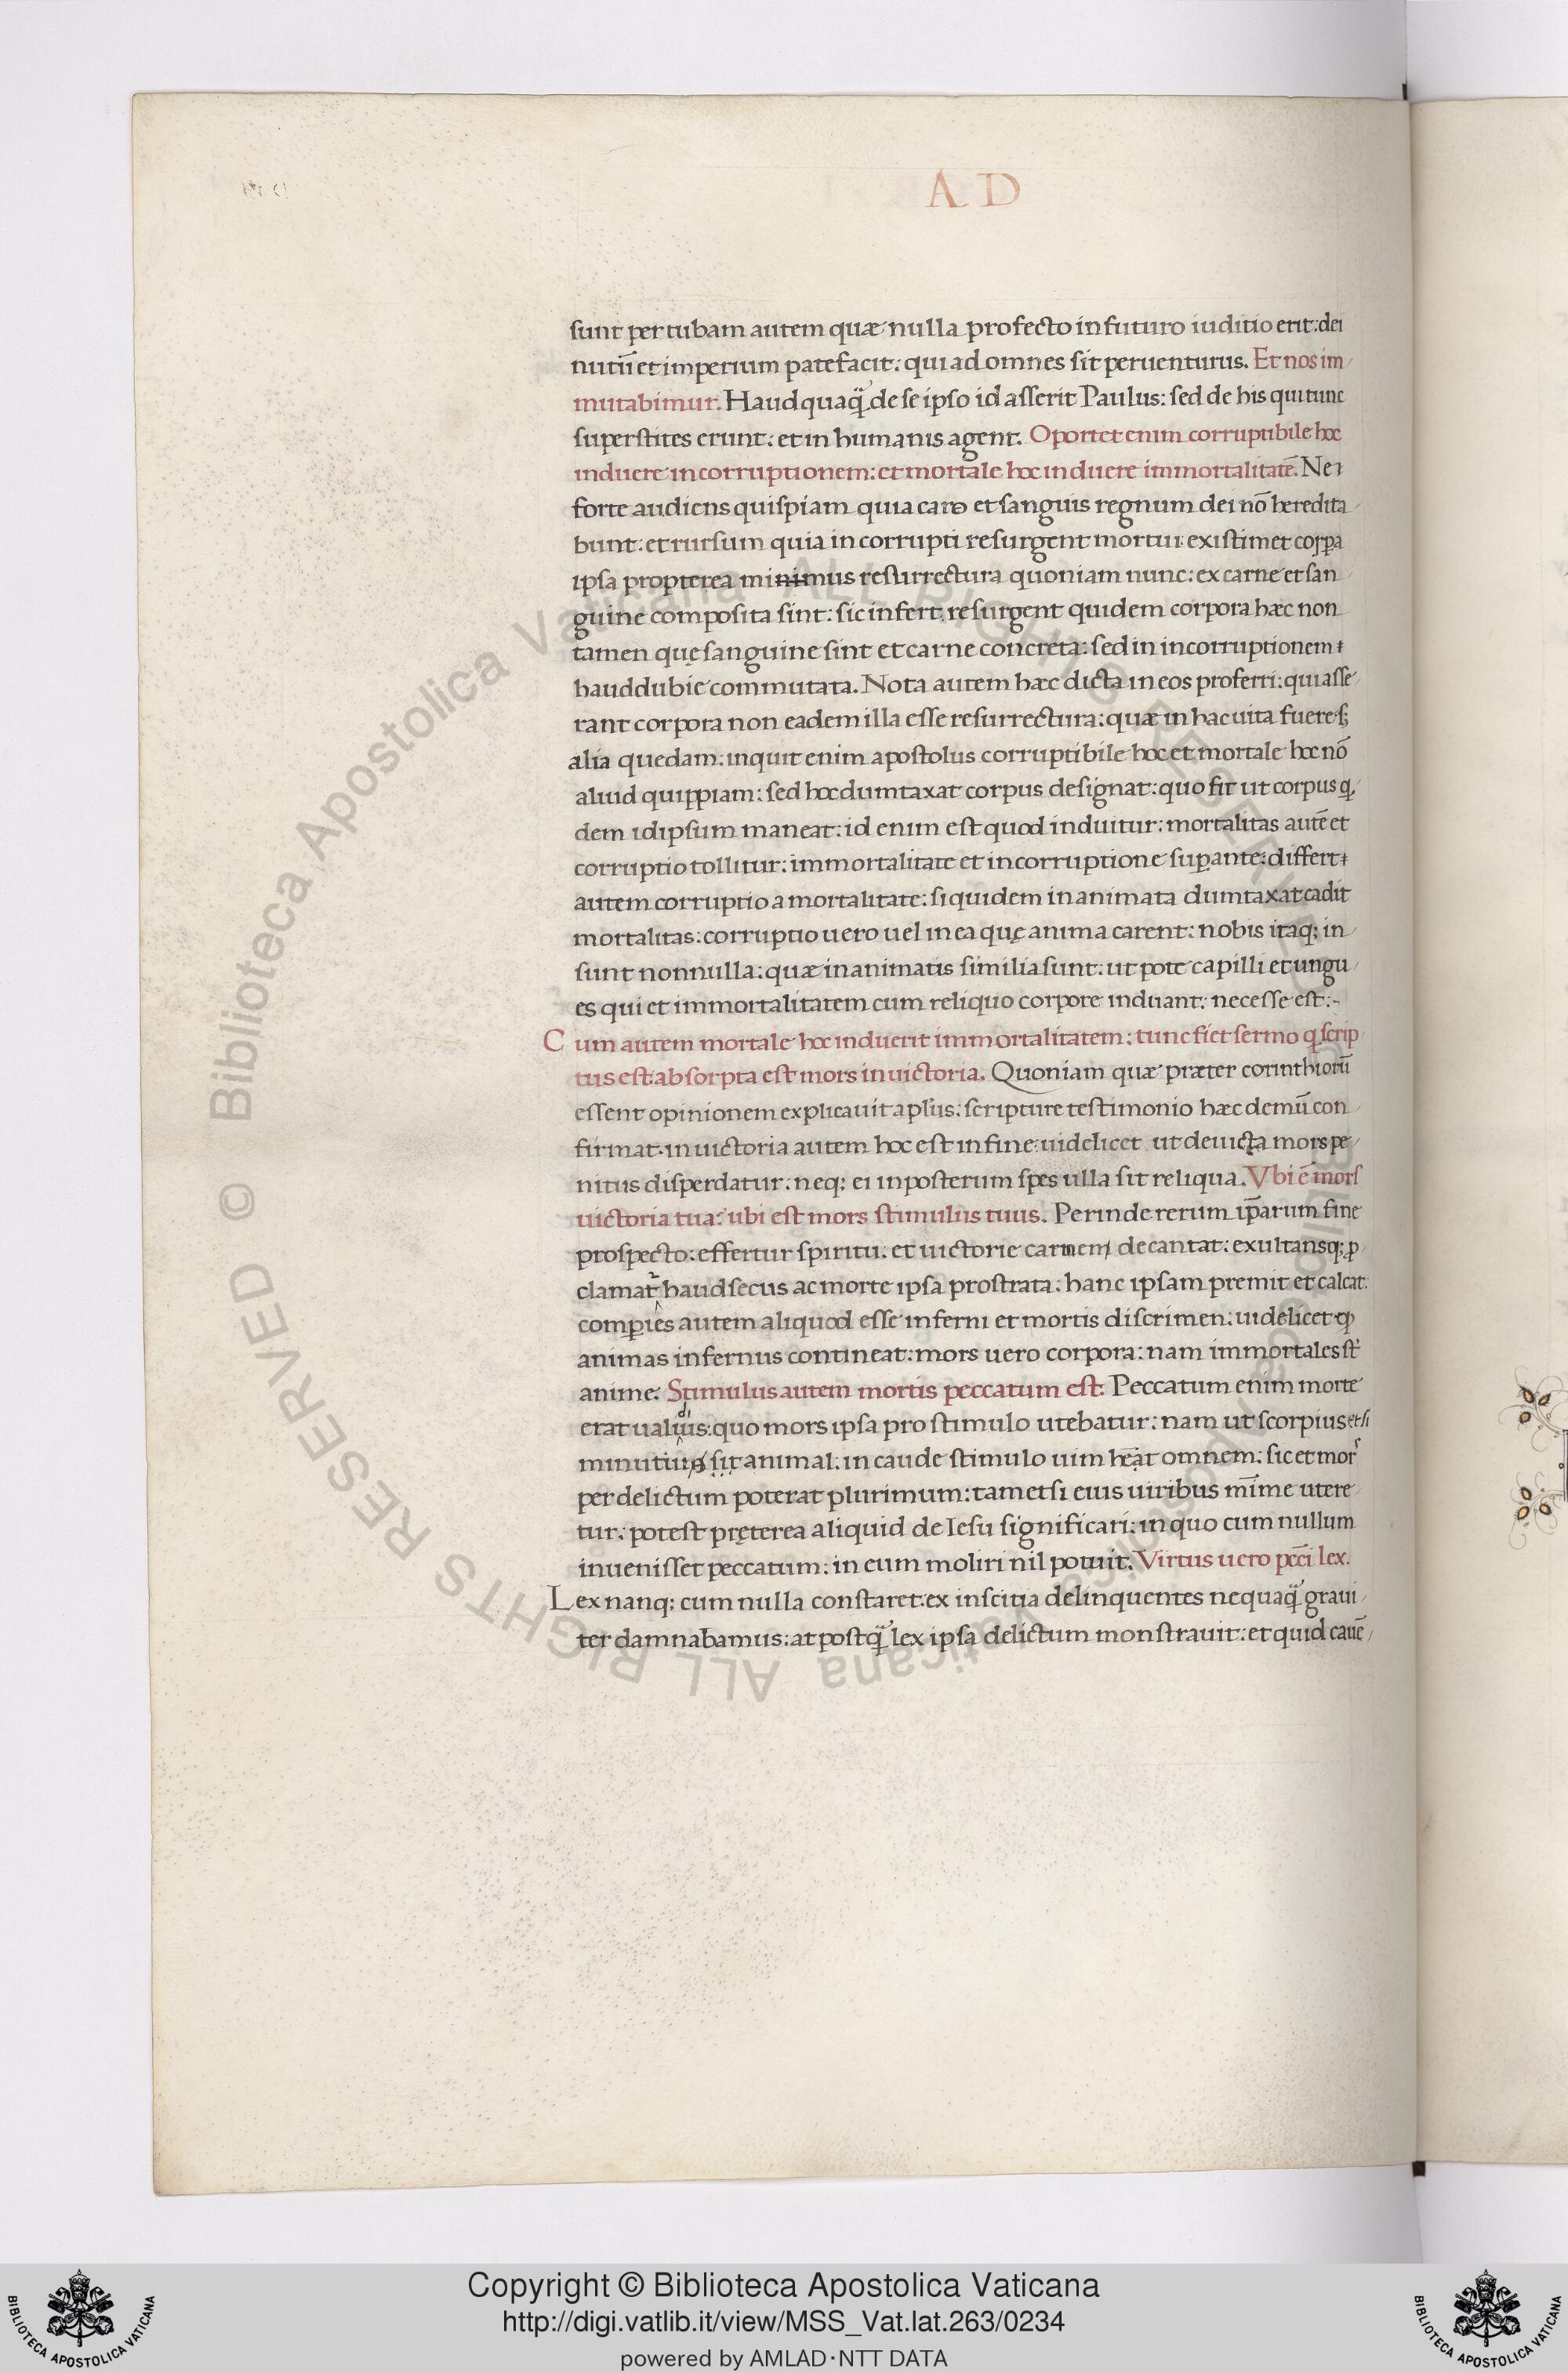 A D
sunt per tubam autem quæ nulla profecto in futuro iuditio erit: dei
nutū et imperium patefacit: qui ad omnes sit peruenturus. Et nos im
mutabimur. Haud quaq̃ de se ipso id asserit Paulus: sed de his qui tunc
superstites erunt: et in humanis agent. Oportet enim corruptibile hoc
induere incorruptionem: et mortale hoc induere immortalitatē. Ne
forte audiens quispiam quia caro et sanguis regnum dei nō heredita
bunt: et rursum quia incorrupti resurgent mortui: existimet corꝑa
ipsa propterea minimus resurrectura quoniam nunc: ex carne et san
guine composita sint: sic infert. resurgent quidem corpora hæc non
tamen quę sanguine sint et carne concreta: sed in incorruptionem
haud dubie commutata. Nota autem hæc dicta in eos proferri: qui asse
rant corpora non eadem illa esse resurrectura: quæ in hac uita fuere: sꝫ
alia quedam: inquit enim apostolus corruptibile hoc et mortale hoc nō
aliud quippiam: sed hoc dumtaxat corpus designat: quo fit ut corpus q
dem idipsum maneat: id enim est quod induitur: mortalitas autē et
corruptio tollitur: immortalitate et incorruptione suꝑante: differt
autem corruptio a mortalitate: siquidem in animata dumtaxat cadit
mortalitas: corruptio uero uel in ea quę anima carent: nobis itaq; in
sunt nonnulla: quæ inanimatis similia sunt: ut pote capilli et ungu
es qui et immortalitatem cum reliquo corpore induant: necesse est:~
Cum autem mortale hoc induerit immortalitatem: tunc fiet sermo q scrip
tus est: absorpta est mors in uictoria. Quoniam quæ præter corinthiorū
essent opinionem explicauit apl'us: scripture testimonio hæc demū con
firmat. in uictoria autem hoc est in fine: uidelicet ut deuicta mors pe
nitus disperdatur: neq; ei in posterum spes ulla sit reliqua. Vbi ē mors
uictoria tua: ubi est mors stimulus tuus. Perinde rerum ip̄arum fine
prospecto: effertur spiritu: et uictorie carmen decantat: exultansq; ꝓ
clamat haud secus ac morte ipsa prostrata: hanc ipsam premit et calcat.
comꝑies autem aliquod esse inferni et mortis discrimen: uidelicet ꝙ
animas infernus contineat: mors uero corpora: nam immortales st̄
anime: Stimulus autem mortis peccatum est: Peccatum enim morte
erat ualidius: quo mors ipsa pro stimulo utebatur: nam ut scorpius etsi
minutius sit animal: in caude stimulo uim hēat omnem: sic et mors
per delictum poterat plurimum: tametsi eius uiribus mīme utere
tur: potest pręterea aliquid de Iesu significari: in quo cum nullum
inuenisset peccatum: in eum moliri nil potuit: Virtus uero pcc̄i lex.
Lex nanq; cum nulla constaret: ex inscitia delinquentes nequaq̃ graui
ter damnabamus: at postq̃ lex ipsa delictum monstrauit: et quid cauē
Copyright © Biblioteca Apostolica Vaticana
http://digi.vatlib.it/view/MSS_Vat.lat.263/0234
powered by AMLAD·NTT DATA
BIBLIOTECA APOSTOLICA VATICANA
BIBLIOTECA APOSTOLICA VATICANA
© Biblioteca Apostolica Vaticana ALL RIGHTS RESERVED